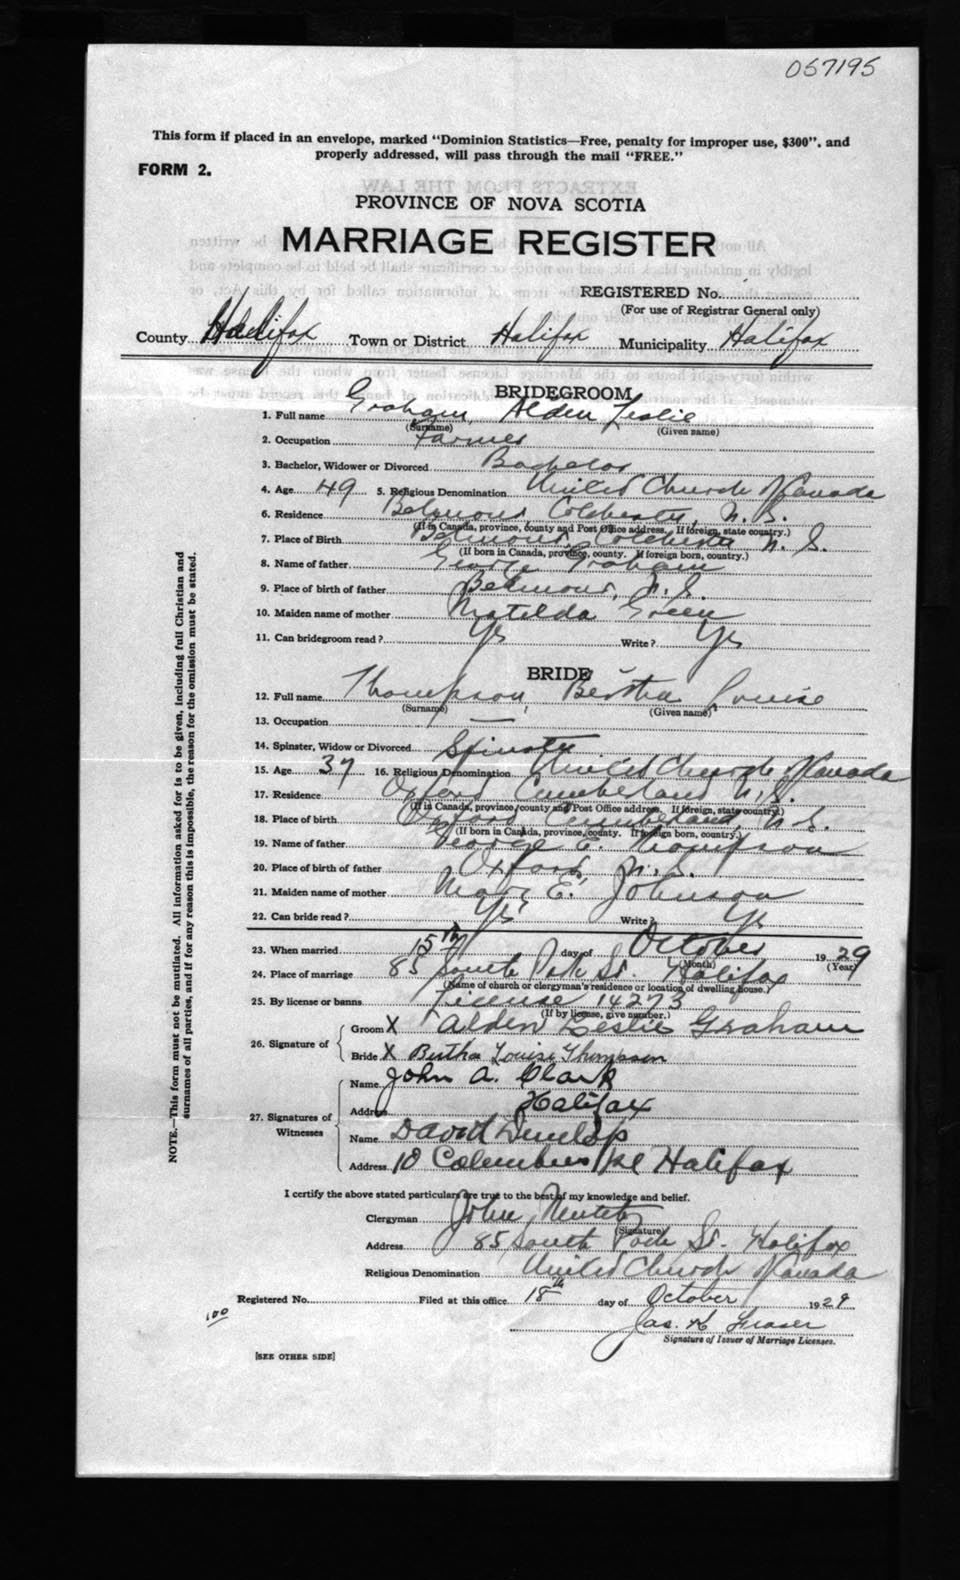 057195
This form if placed in an envelope, marked "Dominion Statistics—Free, penalty for improper use, $300", and
properly addressed, will pass through the mail "FREE."
FORM 2.
PROVINCE OF NOVA SCOTIA
MARRIAGE REGISTER
REGISTERED No.
(For use of Registrar General only)
County Halifax Town or District Halifax Municipality Halifax
BRIDEGROOM
1. Full name Graham, Alden Leslie
(Surname) (Given name)
2. Occupation Farmer
3. Bachelor, Widower or Divorced Bachelor
4. Age 49 5. Religious Denomination United Church of Canada
6. Residence Belmont Colchester, N.S.
(If in Canada, province, county and Post Office address. If foreign, state country.)
7. Place of Birth Belmont, Colchester N.S.
(If born in Canada, province, county. If foreign born, country.)
8. Name of father George Graham
9. Place of birth of father Belmont, N.S.
10. Maiden name of mother Matilda Green
11. Can bridegroom read? Yes Write? Yes
BRIDE
12. Full name Thompson, Bertha Louise
(Surname) (Given name)
13. Occupation —
14. Spinster, Widow or Divorced Spinster
15. Age 37 16. Religious Denomination United Church of Canada
17. Residence Oxford Cumberland N.S.
(If in Canada, province, county and Post Office address. If foreign, state country.)
18. Place of birth Oxford Cumberland, N.S.
(If born in Canada, province, county. If foreign born, country.)
19. Name of father George E. Thompson
20. Place of birth of father Oxford, N.S.
21. Maiden name of mother Mary E. Johnson
22. Can bride read? Yes Write? Yes
23. When married 15th day of October 1929
(Month) (Year)
24. Place of marriage 85 South Park St. Halifax
(Name of church or clergyman's residence or location of dwelling house.)
25. By license or banns License 14273
(If by license, give number.)
26. Signature of
Groom X Alden Leslie Graham
Bride X Bertha Louise Thompson
27. Signatures of Witnesses
Name John A. Clark
Address Halifax
Name David Dunlop
Address 10 Columbus Pl Halifax
I certify the above stated particulars are true to the best of my knowledge and belief.
Clergyman John
(Signature)
Address 85 South Park St. Halifax
Religious Denomination United Church of Canada
Registered No. Filed at this office 18th day of October 1929
100
Jas. H Fraser
Signature of Issuer of Marriage Licenses.
[SEE OTHER SIDE]
NOTE.—This form must not be mutilated. All information asked for is to be given, including full Christian and
surnames of all parties, and if for any reason this is impossible, the reason for the omission must be stated.